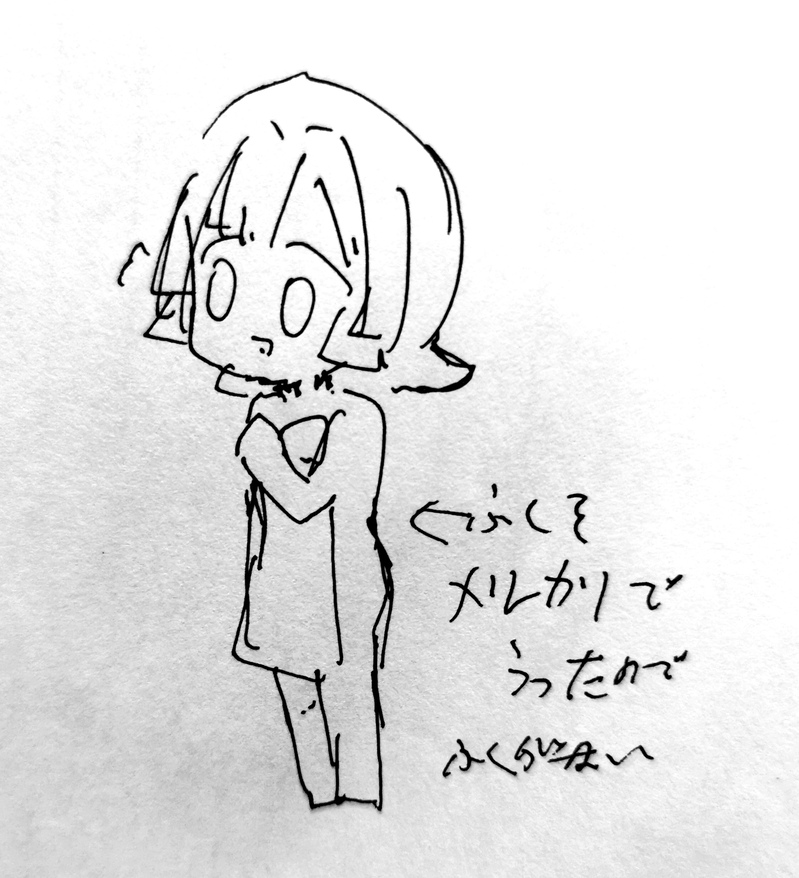 ←ふくを
メルカリで
うったので
ふくがない